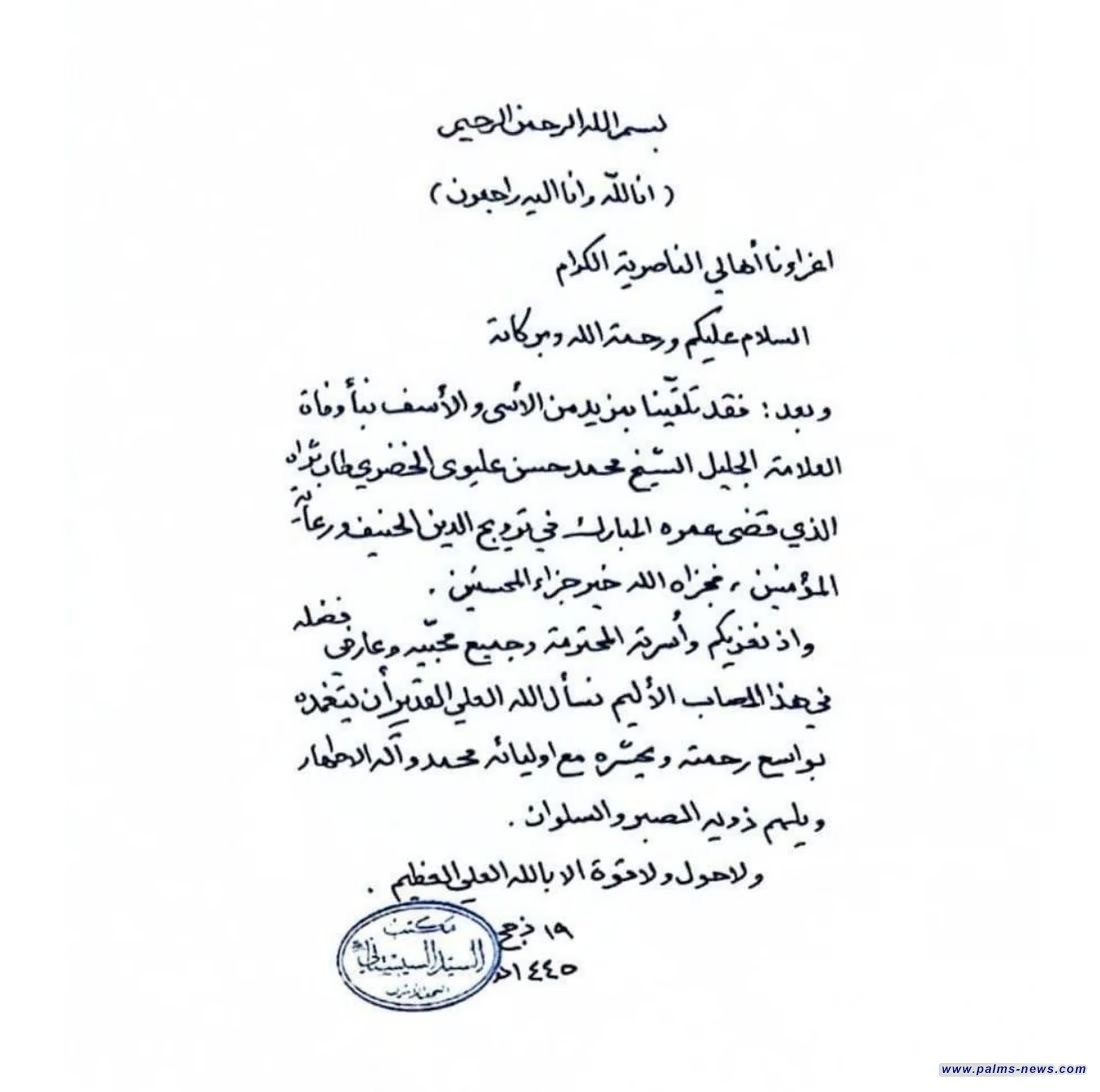 بسم الله الرحمن الرحيم
( انا لله وانا اليه راجعون )
اعزاءنا أهالي الناصرية الكرام
السلام عليكم ورحمة الله وبركاته
وبعد : فقد تلقّينا بمزيد من الأسى والأسف نبأ وفاة
العلامة الجليل الشيخ محمد حسن عليوى الخضري طاب ثراه
الذي قضى عمره المبارك في ترويج الدين الحنيف ورعاية
المؤمنين ، فجزاه الله خير جزاء المحسنين .
واذ نعزيكم وأسرته المحترمة وجميع محبّيه وعارفي فضله
في هذا المصاب الأليم نسأل الله العلي القدير أن يتغمده
بواسع رحمته ويحشره مع اوليائه محمد وآله الاطهار
ويلهم ذويه الصبر والسلوان .
ولا حول ولا قوة الا بالله العلي العظيم .
١٩ ذ حج
١٤٤٥هـ
مكتب
السيد السيستاني
النجف الأشرف
www.palms-news.com